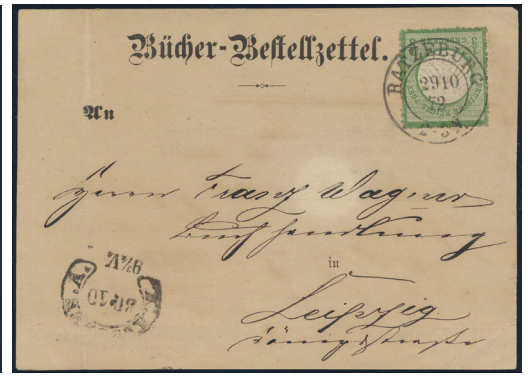 Bücher-Bestellzettel.
RATZEBURG
29 10
72
An
Herrn Franz Wagner
Buchhandlung
in
Leipzig
Königsstraße